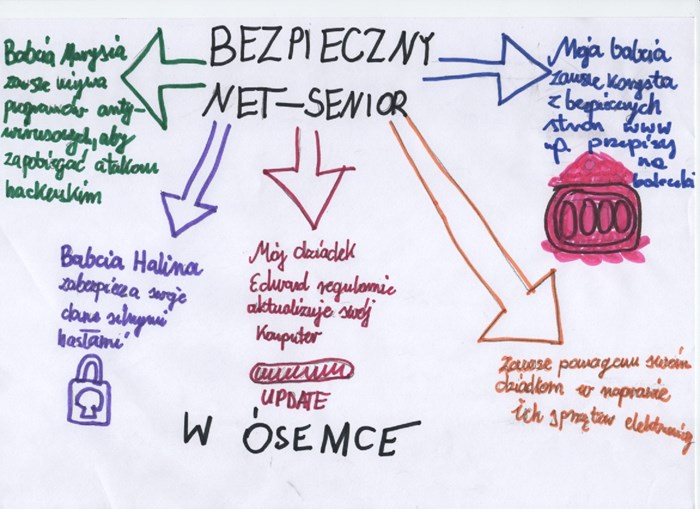 BEZPIECZNY
NET-SENIOR
Babcia Marysia
zawsze używa
programów anty-
wirusowych, aby
zapobiegać atakom
hackerskim
Moja babcia
zawsze korzysta
z bezpiecznych
stron www
np. przepisy
na
babeczki
Babcia Halina
zabezpiecza swoje
dane silnymi
hasłami
Mój dziadek
Edward regularnie
aktualizuje swój
Komputer
UPDATE
Zawsze pomagam swoim
dziadkom w naprawie
Ich sprzętów
W ÓSEMCE